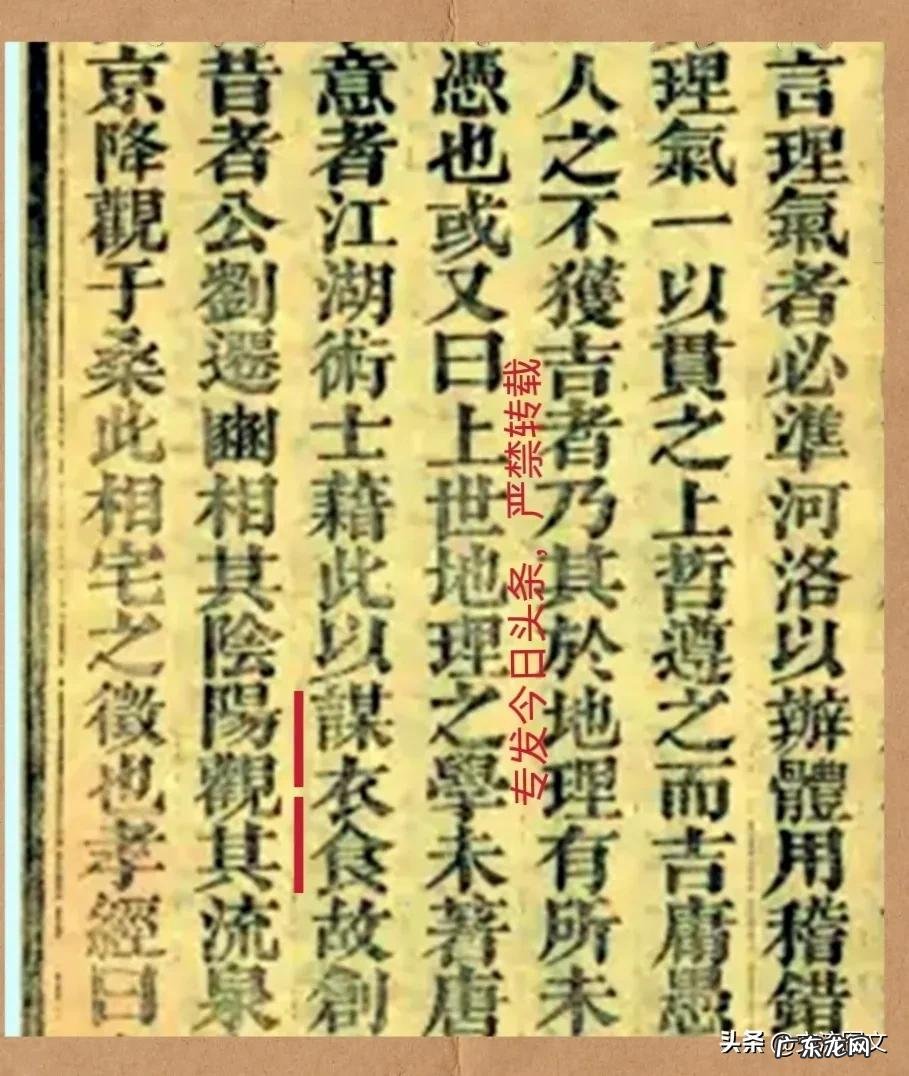 言理氣者必準河洛以辦體用稽錯
理氣一以貫之上哲遵之而吉庸愚
人之不獲吉者乃其於地理有所未
憑也或又曰上世地理之學未著唐
意者江湖術士藉此以謀衣食故創
昔者公劉遷豳相其陰陽觀其流泉
京降觀于桑此相宅之徵也孝經曰
专发今日头条，严禁转载
头条
广东龙网